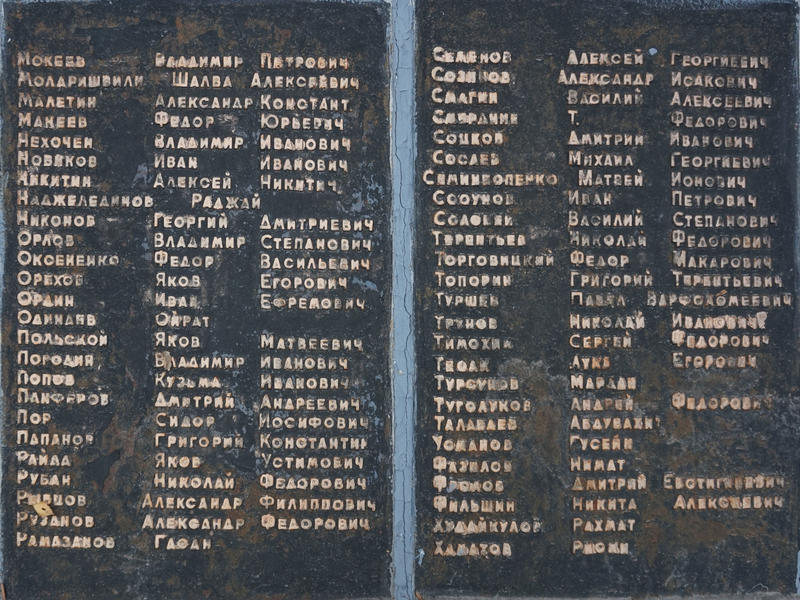 Мокеев Владимир Петрович
Моларишвили Шалва Алексеевич
Малетин Александр Константи
Макеев Федор Юрьевич
Нехочен Владимир Иванович
Новаков Иван Иванович
Никитин Алексей Никитич
Наджелединов Раджай
Никонов Георгий Дмитриевич
Орлов Владимир Степанович
Оксененко Федор Васильевич
Орехов Яков Егорович
Ордин Иван Ефремович
Одинаев
Польской Яков Матвеевич
Погодин Владимир Иванович
Попов Кузьма Иванович
Панферов Дмитрий Андреевич
Пор Сидор Иосифович
Папанов Григорий Константин
Райда Яков Устимович
Рубан Николай Федорович
Рывцов Александр Филиппович
Рузанов Александр Федорович
Рамазанов Гасан
Семенов Алексей Георгиевич
Созинов Александр Исакович
Смагин Василий Алексеевич
Т. Федорович
Соцков Дмитрий Иванович
Сослев Михаил Георгиевич
Семиноженко Матвей Ионович
Иван Петрович
Соловьй Василий Степанович
Терентьев Николай Федорович
Торговицкий Федор Макарович
Топорин Григорий Терентьевич
Туршев Павел Варфоломеевич
Трунов Николай Иванович
Тимохин Сергей Федорович
Егорович
Турсунов Мардан
Туголуков Андрей Федорович
Талабаев Абдувахит
Усманов Гусейн
Фазылов Нимат
Фромов Дмитрий Евстигнеевич
Фильшин Никита Алексеевич
Худайкулов Рахмат
Хамахов